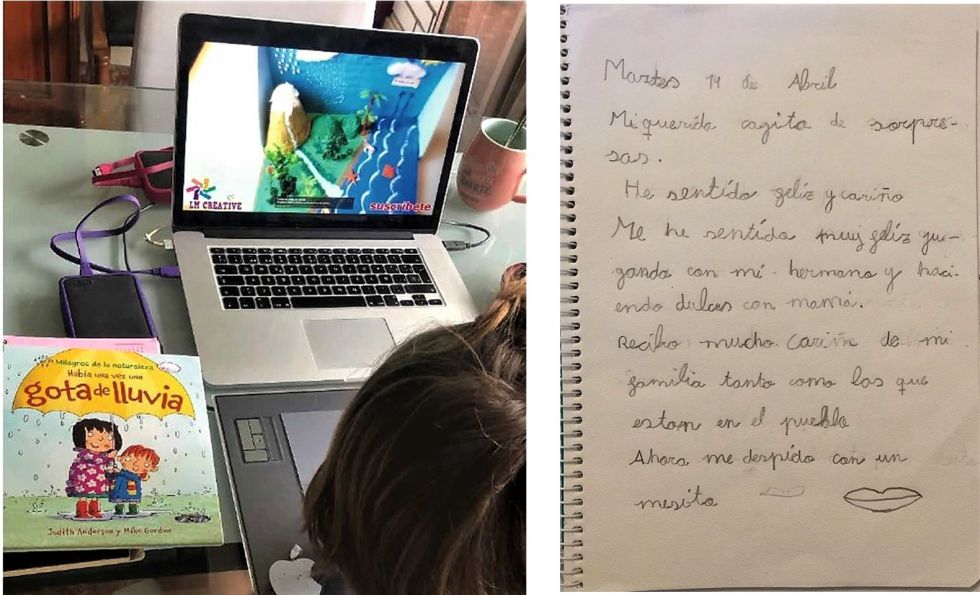 LM CREATIVE
suscribete
Milagros de la naturaleza
Había una vez una
gota de lluvia
Judith Anderson y Mike Gordon
Martes 14 de Abril
Mi querida cagita de sorpre-
sas.
He sentido feliz y cariño
Me he sentido muy feliz ju-
gando con mi hermano y haci-
endo dulces con mamá.
Recibo mucho cariñ de mi
familia tanto como los que
estan en el pueblo
Ahora me despido con un
mesito